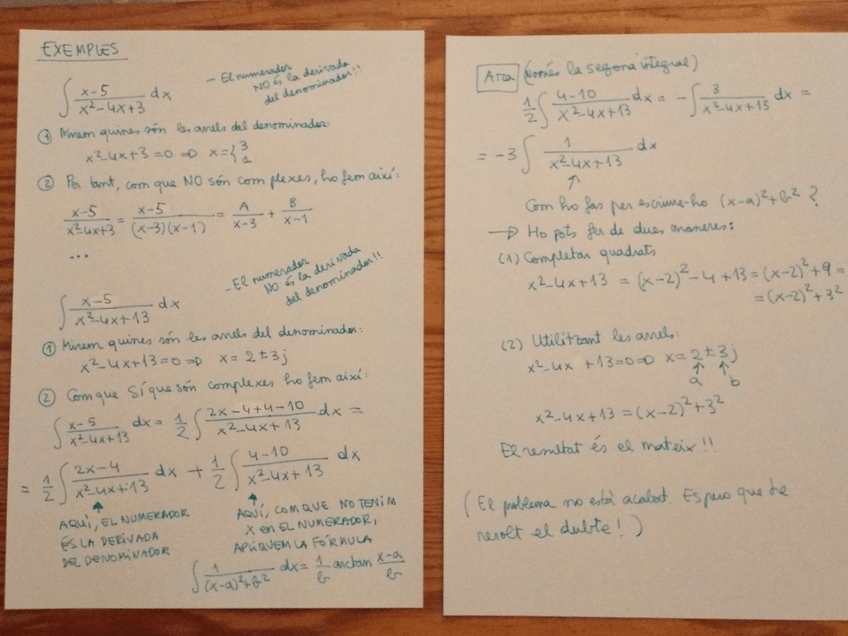 EXEMPLES
∫ x-5 / x²-4x+3 dx
- El numerador
NO és la derivada
del denominador!!
① Mirem quines són les arrels del denominador:
x²-4x+3=0 ⇒ x={3 1
② Per tant, com que NO són complexes, ho fem així:
x-5 / x²-4x+3 = x-5 / (x-3)(x-1) = A / x-3 + B / x-1
...
- El numerador
NO és la derivada
del denominador!!
∫ x-5 / x²-4x+13 dx
① Mirem quines són les arrels del denominador:
x²-4x+13=0 ⇒ x = 2±3j
② Com que Sí que són complexes ho fem així:
∫ x-5 / x²-4x+13 dx = 1/2 ∫ 2x-4+4-10 / x²-4x+13 dx =
= 1/2 ∫ 2x-4 / x²-4x+13 dx + 1/2 ∫ 4-10 / x²-4x+13 dx
AQUÍ, EL NUMERADOR
ÉS LA DERIVADA
DEL DENOMINADOR
AQUÍ, COM QUE NO TENIM
X EN EL NUMERADOR,
APLIQUEM LA FÓRMULA
∫ 1 / (x-a)²+b² dx = 1/b arctan x-a / b
Ara (Només la segona integral)
1/2 ∫ 4-10 / x²-4x+13 dx = -∫ 3 / x²-4x+13 dx =
= -3 ∫ 1 / x²-4x+13 dx
↑
Com ho fas per escriure-ho (x-a)²+b² ?
→ Ho pots fer de dues maneres:
(1) Completar quadrats
x²-4x+13 = (x-2)²-4+13 = (x-2)²+9 =
= (x-2)²+3²
(2) Utilitzant les arrels:
x²-4x+13=0 ⇒ x = 2±3j
a b
x²-4x+13 = (x-2)²+3²
El resultat és el mateix!!
(El problema no està acabat. Espero que t'he
resolt el dubte!)